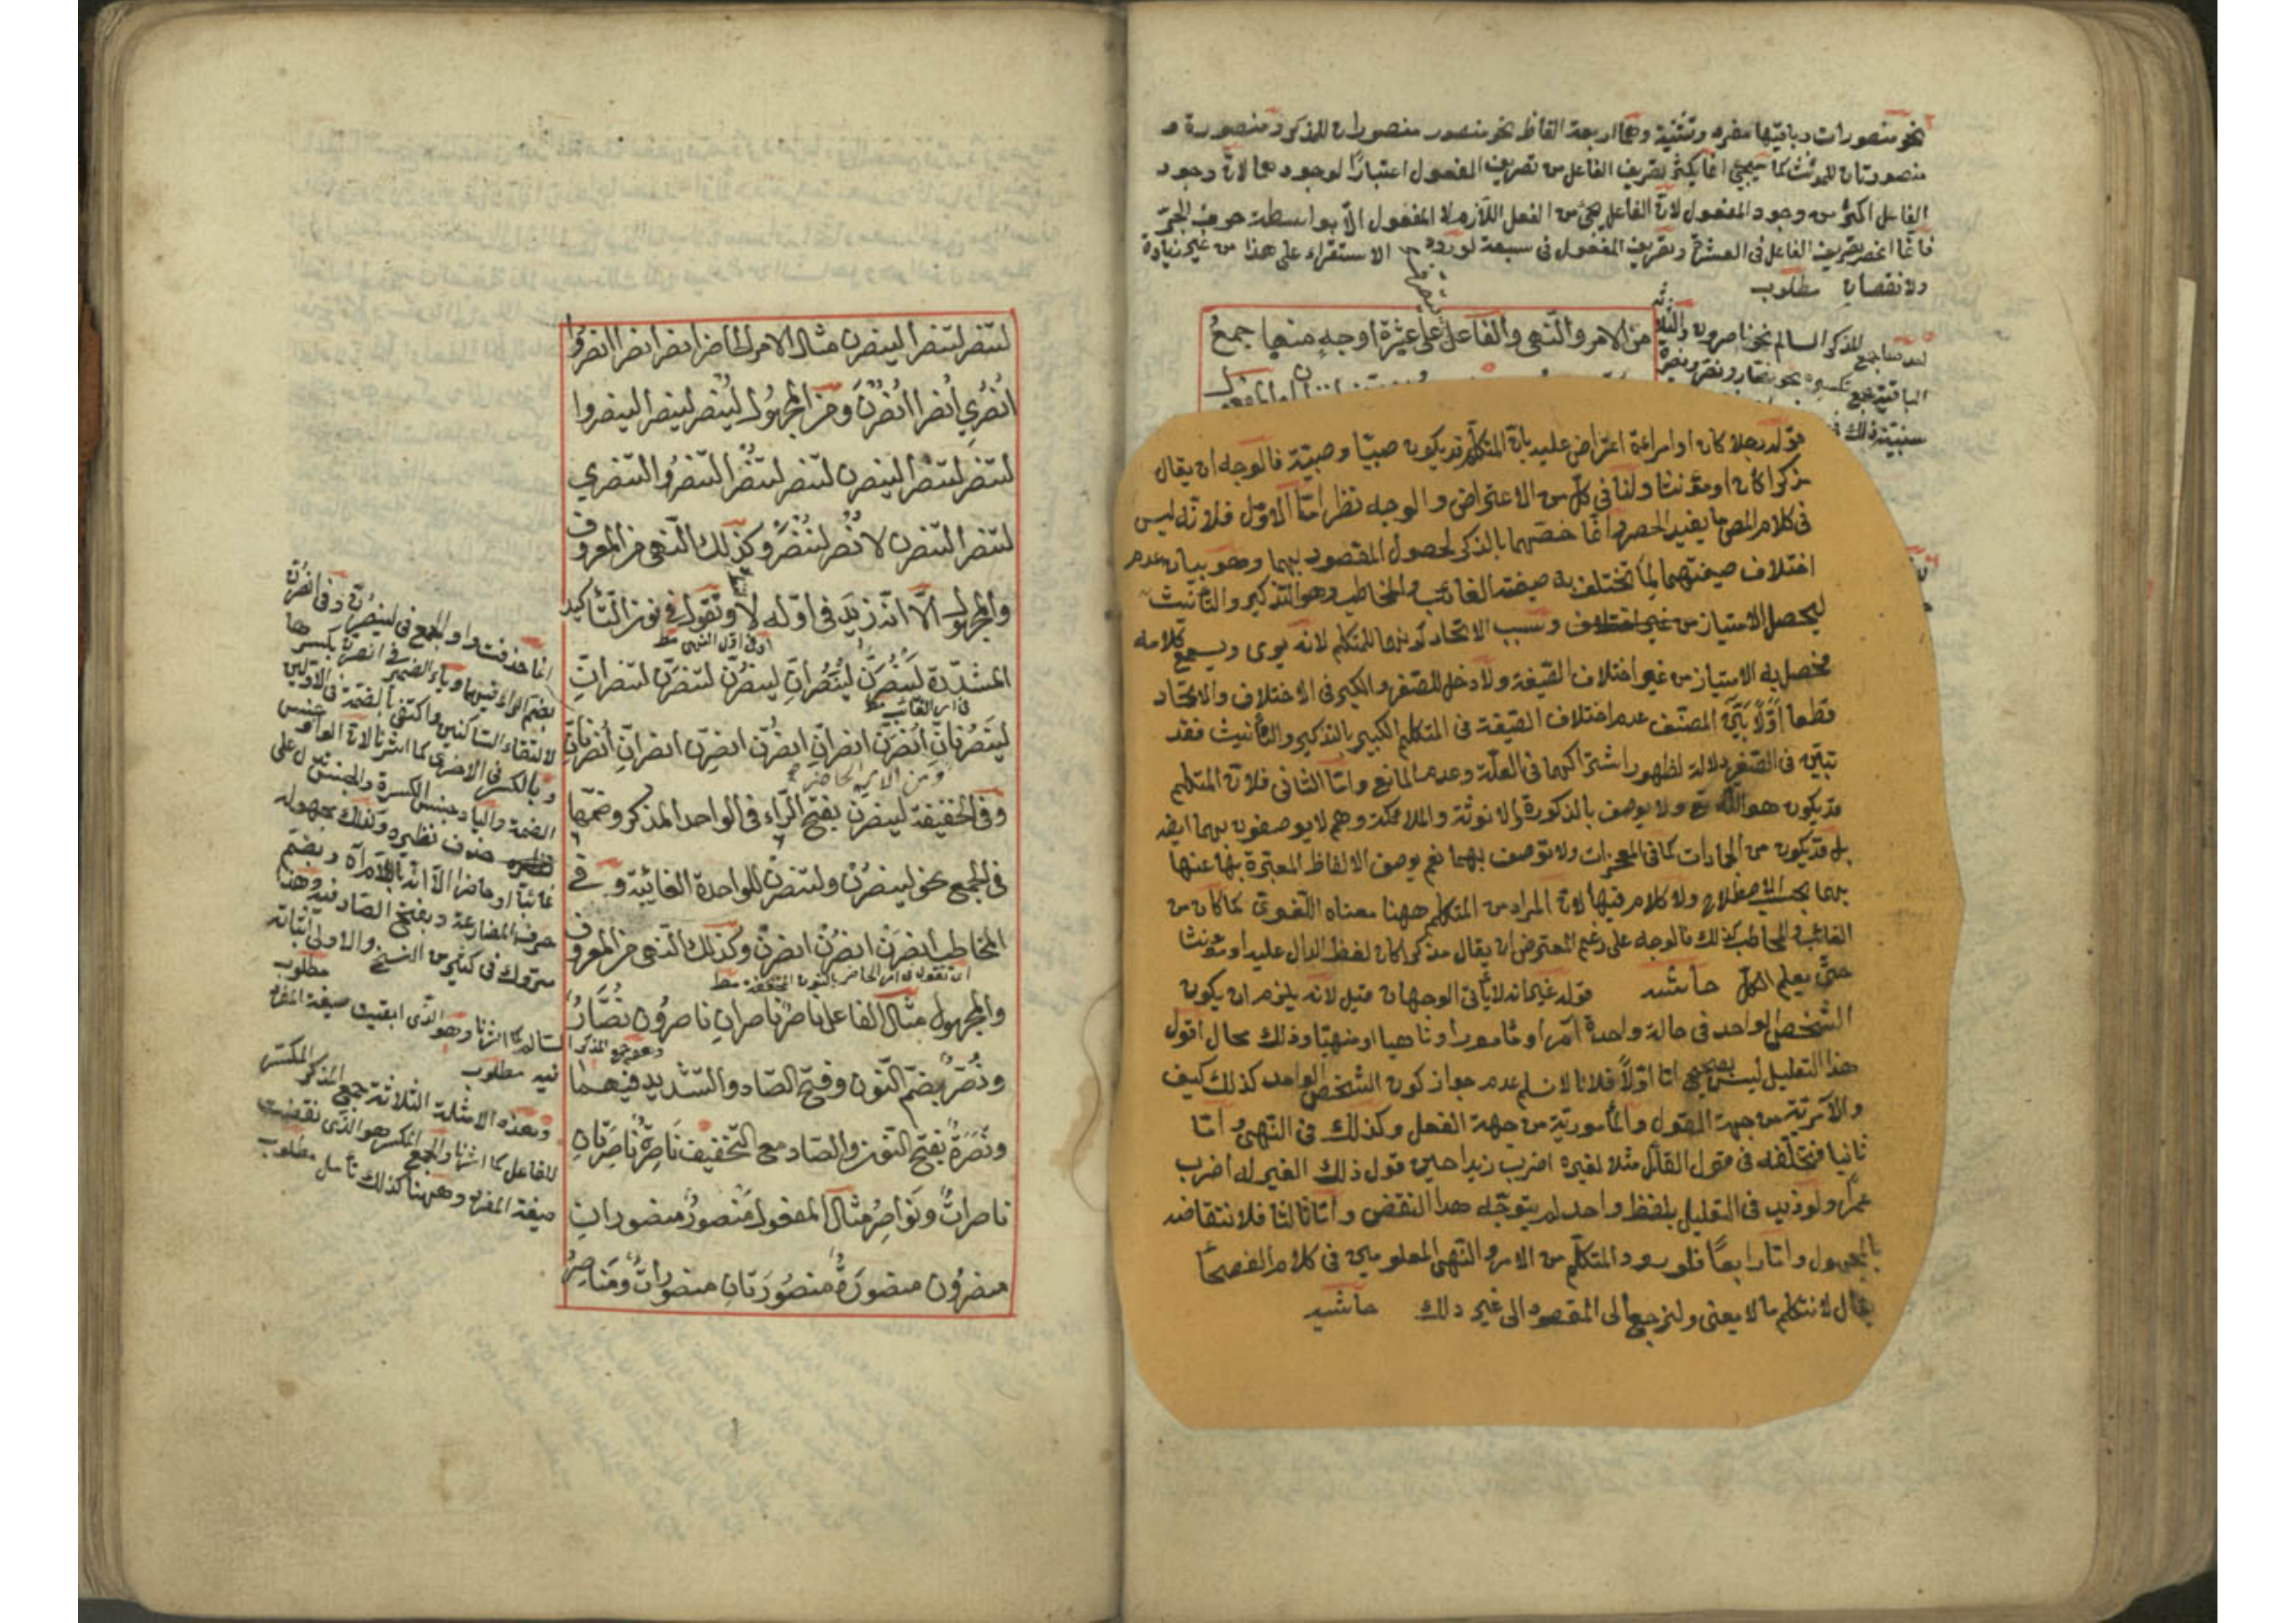 نحو منصورات وباقيها مفرد وتثنية وهما اربعة الفاظ نحو منصور منصوران للمذكر ومنصورة و
منصورتان للمؤنث كما سيجيئ انما يكثر تصريف الفاعل من تصريف المفعول اعتبارًا لوجودهما لانّ وجود
الفاعل اكثر من وجود المفعول لانّ الفاعل يجئ من الفعل اللّازم لا المفعول الّا بواسطة حرف الجرّ
فانّما انحصر تصريف الفاعل فى العشرة وتصريف المفعول فى سبعة لورود الاستقراء على هذا من غير زيادة
ولا نقصان مطلوب
من الامر والنّهى والفاعل على عشرة اوجه منها جمع
المذكر السالم نحو ناصرون والثلاثة
الباقية جمع تكسير نحو نصّار ونصّر ونصرة
قوله رجلا كان او امرأة اعتراض عليه بانّ المتكلّم قد يكون صبيّا وصبيّة فالوجه ان يقال
مذكرا كان او مؤنثا ولنا فى كلّ من الاعتراض والوجه نظر امّا الاوّل فلانّه ليس
فى كلام المص ما يفيد الحصر وانّما خصّهما بالذكر لحصول المقصود بهما وهو بيان عدم
اختلاف صيغتهما لما تختلف به صيغة الغائب والمخاطب وهو التذكير والتأنيث
ليحصل الامتياز من غير اختلاف وسبب الاتحاد كونهما للمتكلم لانه يرى ويسمع كلامه
فيحصل به الامتياز من غير اختلاف الصّيغة ولا دخل للصّغر والكبر فى الاختلاف والاتّحاد
قطعا اوّلا بيّن المصنّف عدم اختلاف الصّيغة فى المتكلم الكبير بالتذكير والتأنيث فقد
تبيّن فى الصّغير دلالة لظهور اشتراكهما فى العلّة وعدم المانع وامّا الثانى فلانّ المتكلم
قد يكون هو اللّه تع ولا يوصف بالذكورة والانوثة والملائكة وهم لا يوصفون بهما ايضا
بل قد يكون من الجمادات كما فى المعجزات ولا توصف بهما نعم يوصف الالفاظ المعتبرة بها عنها
بهما بحسب الاصطلاح ولا كلام فيها لانّ المراد من المتكلم ههنا معناه اللّغوىّ كما كان من
الغائب والمخاطب كذلك فالوجه على زعم المعترض ان يقال مذكرا كان لفظ الدال عليه او مؤنثا
حتّى يعلم الكلّ حاشيه قوله غير انه لا يأتى الوجهان قيل لانه يلزم ان يكون
الشخص الواحد فى حالة واحدة آمرا ومأمورا وناهيا ومنهيّا وذلك محال اقول
هذا التعليل ليس بصحيح امّا اوّلاً فلانا لا نسلم عدم جواز كون الشخص الواحد كذلك كيف
والآمريّة من جهة القول والمأموريّة من جهة الفعل وكذلك فى النّهى وامّا
ثانيا فتخلّفه فى قول القائل مثلا لغيره اضرب زيدا حين قول ذلك الغير له اضرب
عمرا ولو زيد فى التعليل بلفظ واحد لم يتوجّه هذا النقض وامّا ثالثا فلانتقاضه
بالمجهول وامّا رابعًا فلورود المتكلّم من الامر والنّهى المعلومين فى كلام الفصحاء
يقال لانتكلم ما لا يعنى ولنرجع الى المقصود الى غير ذلك حاشيه
لتنصر لتنصرا لينصرن مثال الامر الحاضر انصر انصرا انصروا
انصري انصرا انصرن ومن المجهول لينصر لينصرا لينصروا
لتنصر لتنصرا لينصرن لتنصر لتنصرا لتنصروا لتنصري
لتنصرا لتنصرن لانصر لننصر وكذلك النّهى من المعروف
والمجهول الّا انّه زيد فى اوّله لا وتقول فى نون التّأكيد
اى فى اوّل النهى
المشدّدة لينصرنّ لينصرانّ لينصرنّ لتنصرنّ لتنصرانّ
فى امر الغائب
لينصرنانّ انصرنّ انصرانّ انصرنّ انصرنّ انصرانّ انصرنانّ
ومن الامر الحاضر
وفى الخفيفة لينصرن بفتح الرّاء فى الواحد المذكر وضمّها
فى الجمع نحو لينصرن ولتنصرن للواحدة الغائبة و فى
المخاطب انصرن انصرن انصرن وكذلك النّهى من المعروف
اى تقول فى امر الحاضر بالنون المخففة
والمجهول مثال الفاعل ناصر ناصران ناصرون نصّار
وهو جمع المذكر السالم كما اشرنا وهو الّذى ابقيت صيغة المفرد
فيه مطلوب
ونصّر بضمّ النّون وفتح الصّاد والتّشديد فيهما
ونصرة بفتح النّون والصّاد مع التّخفيف ناصرة ناصرتان
ناصرات ونواصر مثال المفعول منصور منصوران
منصرون منصورة منصورتان منصورات ومناصر
انما حذفت واو الجمع فى لينصرنّ وفى انصرنّ
بضم الراء فيهما وياء الضمير فى انصرنّ بكسرها
لالتقاء الساكنين واكتفى بالضمة فى الاوّلين
وبالكسر فى الاخرى كما اشرنا لانّ الواو جنس
الضمة والياء جنس الكسرة والجنس يدل على
حذف نظيره وكذلك مجهوله
غائبا او حاضرا الّا انّه باللام وبضمّ
حرف المضارعة وبفتح الصّاد فيه وهذا
متروك فى كثير من النسخ والاولى اثباته
مطلوب
وهذه الامثلة الثلاثة جمع المذكر المكسّر
للفاعل كما اشرنا والجمع المكسّر هو الذى نقضت
صيغة المفرد وههنا كذلك تأمل مطلوب